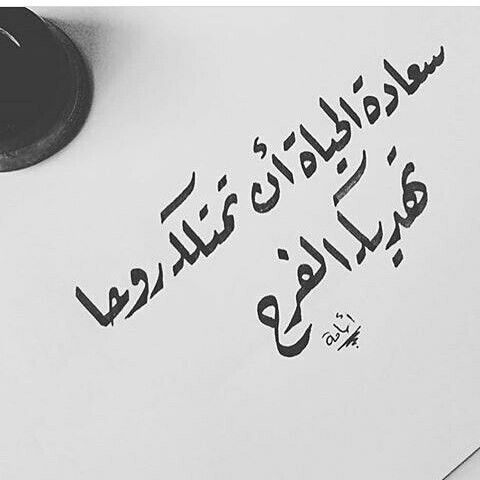 سعادة الحياة أن تمتلك روحا
تهديك الفرح